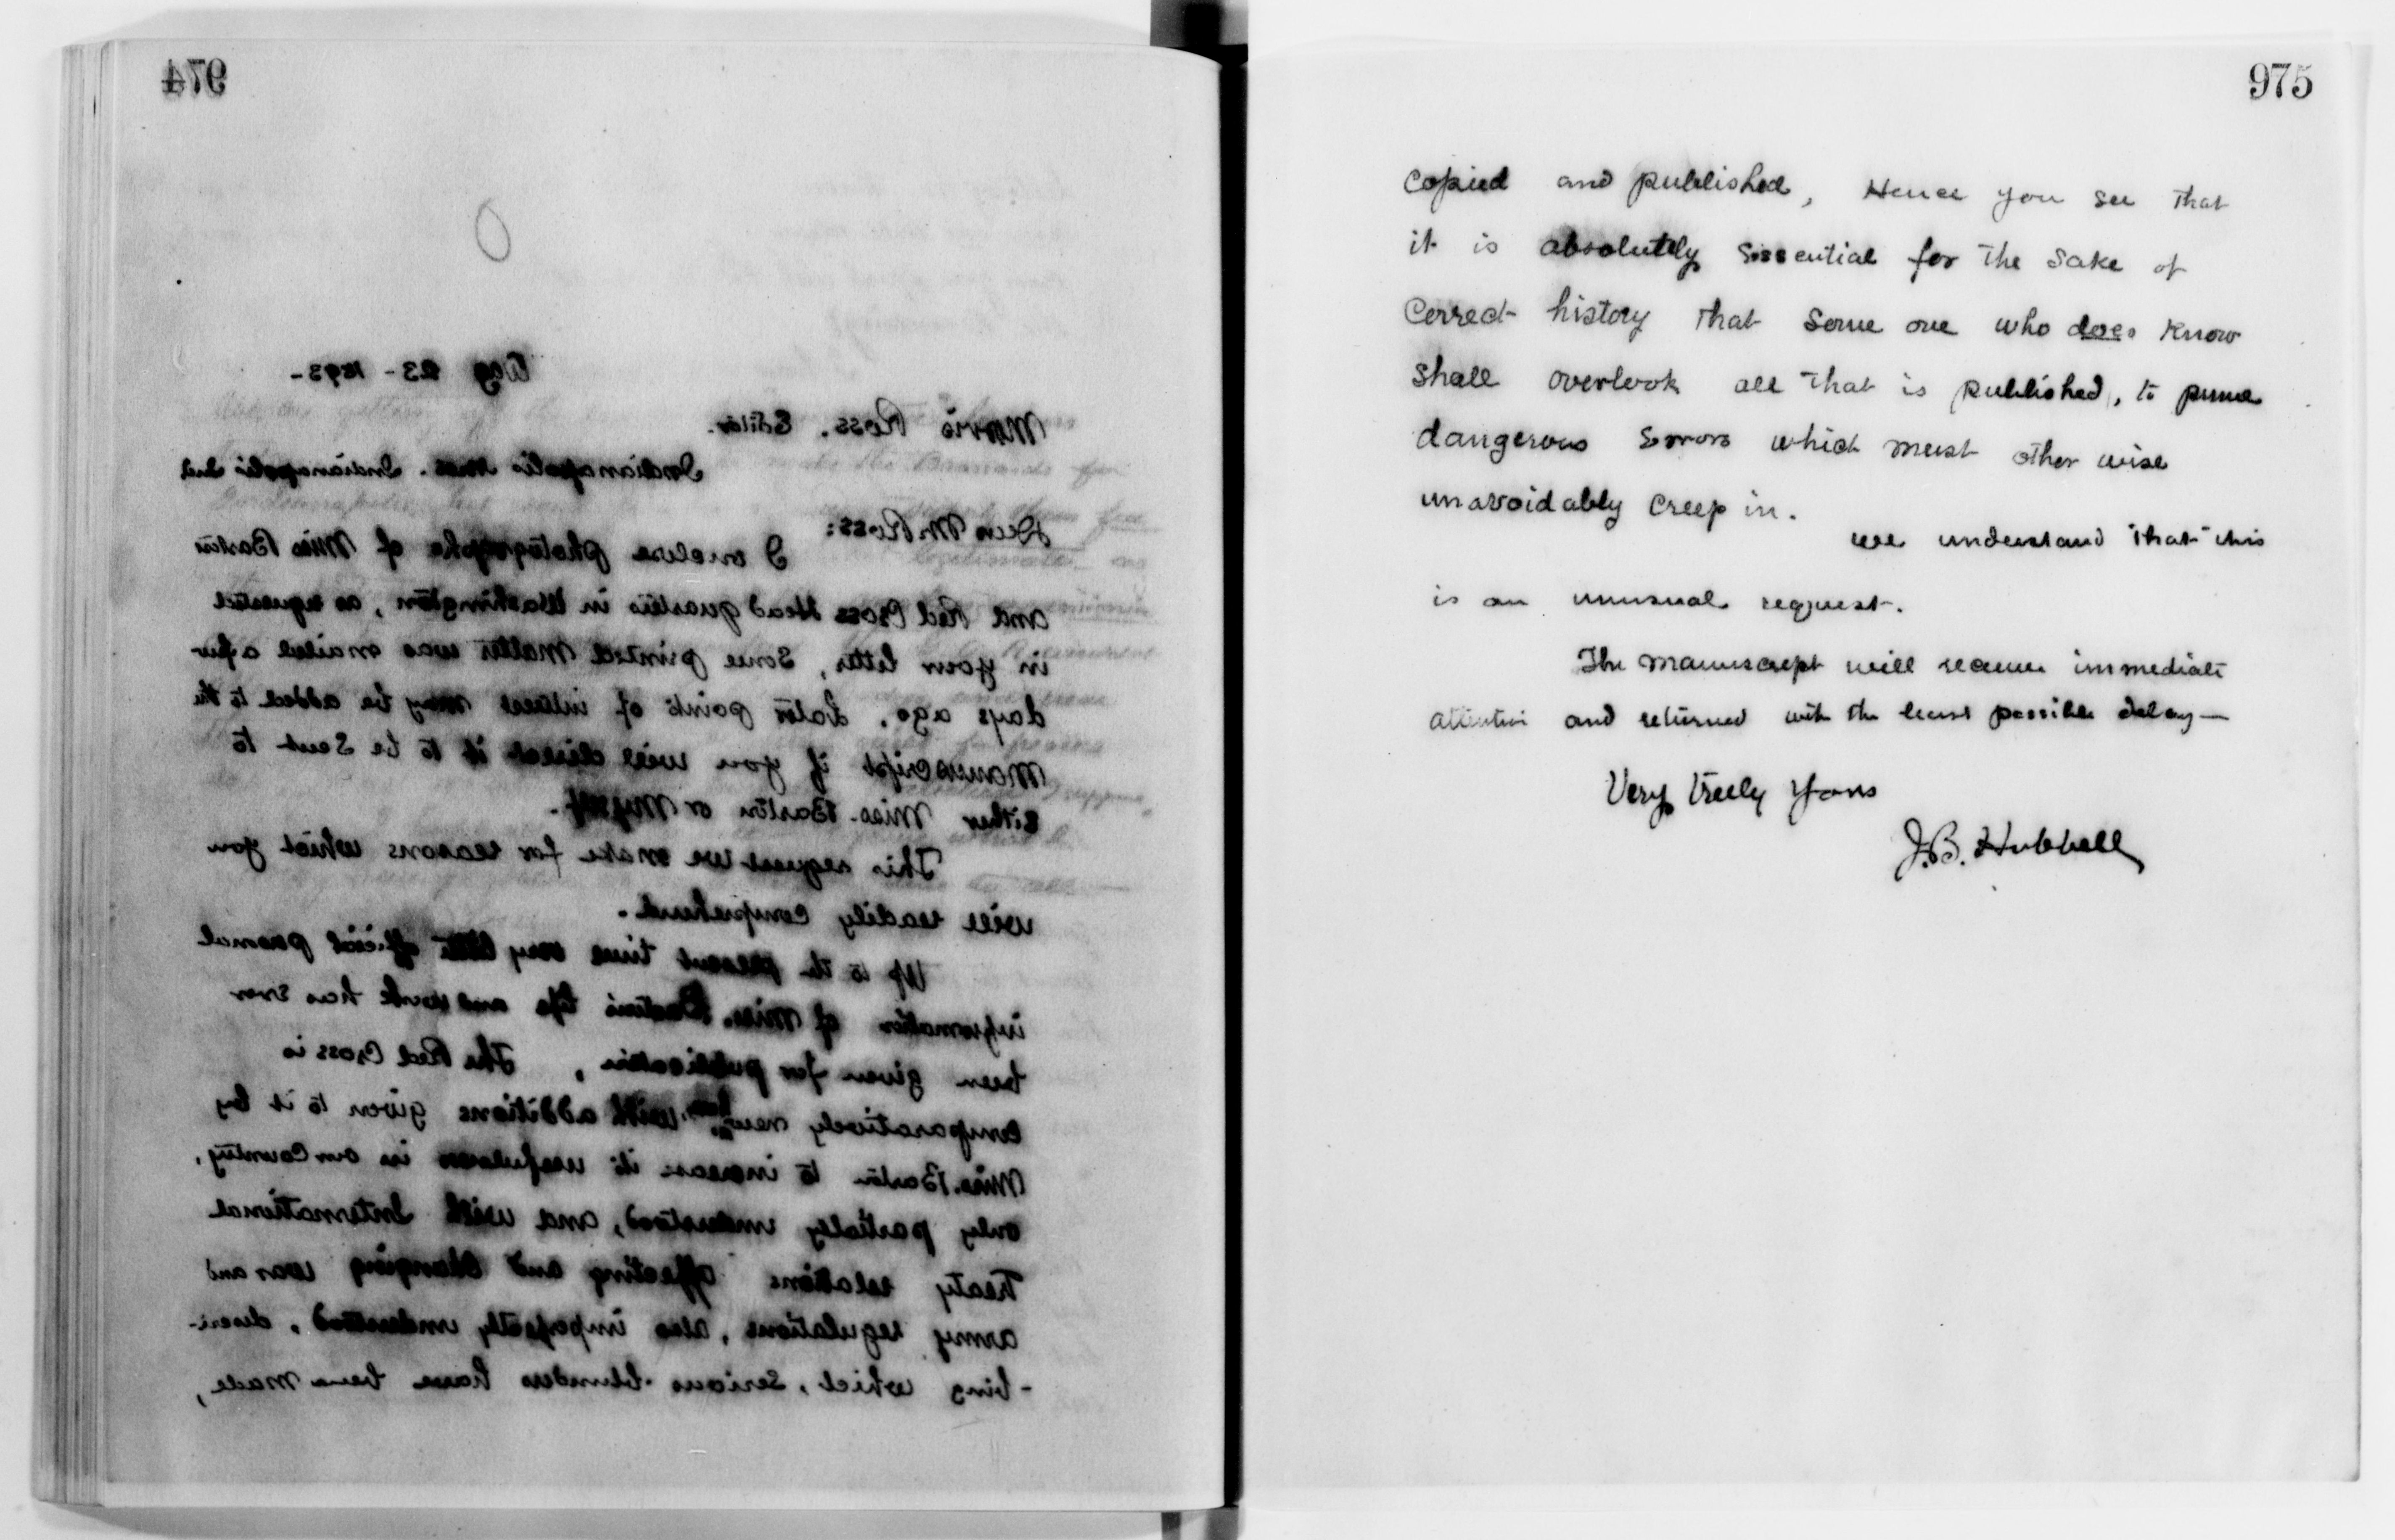 974
Aug 23 - 1893 -
Morris Ross. Editor.
Indianapolis News. Indianapolis Ind
Dear Mr Ross:
I enclose photographs of Miss Barton
and Red Cross Head quarters in Washington, as requested
in your letter, Some printed matter was mailed a few
days ago. Later points of interest may be added to the
Manuscript if you will direct it to be sent to
Either Miss. Barton or Myself.
This request we make for reasons which you
will readily comprehend.
Up to the present time very little official personal
information of Miss. Barton's life and work has ever
been given for publication, The Red Cross is
comparatively new, with additions given to it by
Miss. Barton to increase its usefulness in our Country,
only partially understood, and with International
Treaty relations affecting and changing war and
army regulations, also imperfectly understood, descri-
-bing which, serious blunders have been made,
975
copied and published, Hence you see that
it is absolutely essential for the sake of
correct history that some one who does know
shall overlook all that is published, to prune
dangerous Errors which must other wise
unavoidably creep in.
We understand that this
is an unusual request.
The manuscript will receive immediate
attention and returned with the least possible delay—
Very truly yours
J.B. Hubbell